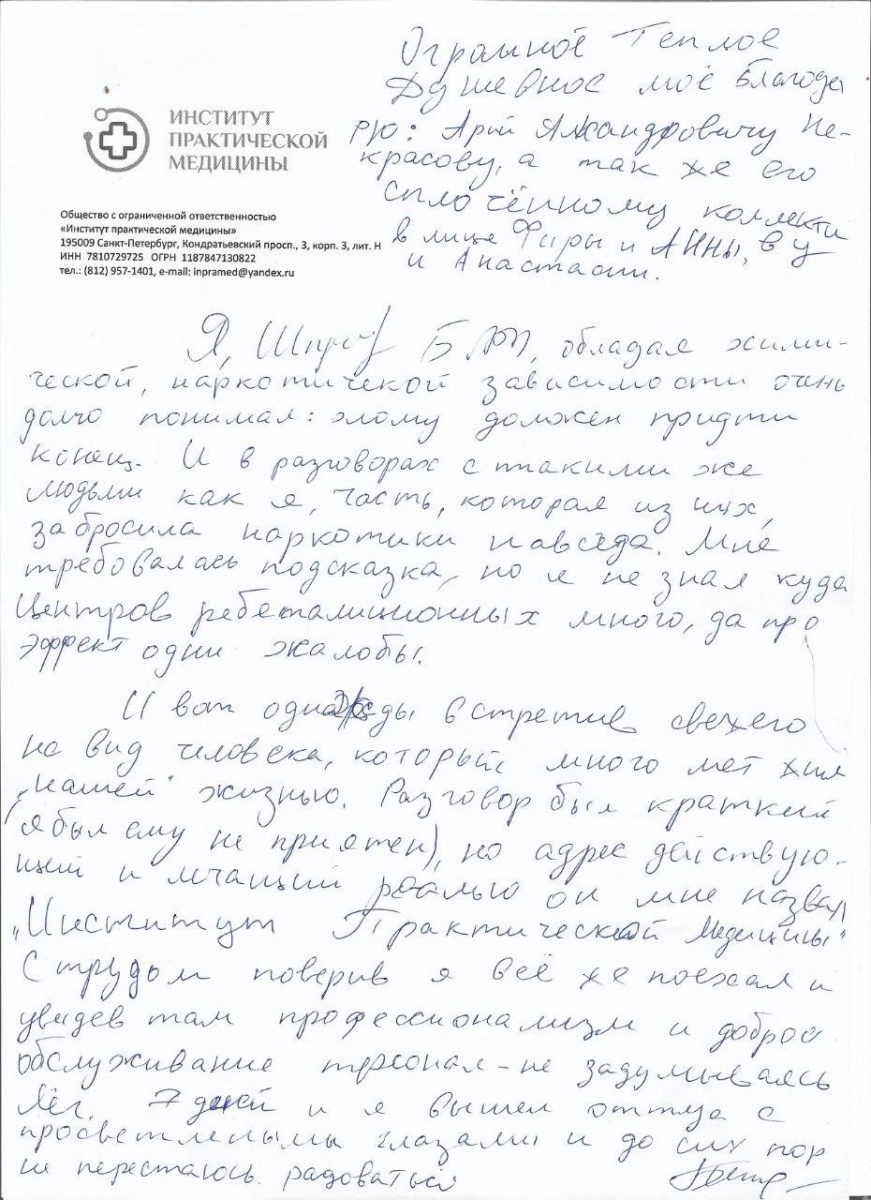 Огромное Теплое
Душевное моё Благода
рю: Александровичу Не-
красову, а так же его
сплочённому коллекти
в лице и Анны, ву
и Анастасии.
ИНСТИТУТ
ПРАКТИЧЕСКОЙ
МЕДИЦИНЫ
Общество с ограниченной ответственностью
«Институт практической медицины»
195009 Санкт-Петербург, Кондратьевский просп., 3, корп. 3, лит. Н
ИНН 7810729725 ОГРН 1187847130822
тел.: (812) 957-1401, e-mail: inpramed@yandex.ru
Я, обладая хими-
ческой, наркотичекой зависимости очень
долго понимал: этому должен придти
конец. И в разговорах с такими же
людьми как я, часть, которая из них,
забросила наркотики навсегда. Мне
требовалась подсказка, но я не знал куда
Центров ребеталиционных много, да про
эффект одни жалобы.
И вот однажды встретив свежего
на вид человека, который много лет жил
"нашей" жизнью. Разговор был краткий
(я был ему не приятен), но адрес действую-
щий и реалью он мне назвал
"Институт Практической Медицины"
С трудом поверив я всё же поехал и
увидев там профессионализм и доброе
обслуживание персонал - не задумываясь
лёг. 7 дней и я вышел оттуда с
просветлеными глазами и до сих пор
не перестаюсь радоваться